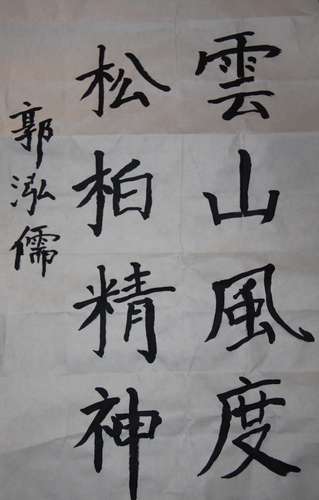 雲山風度
松柏精神
郭泓儒